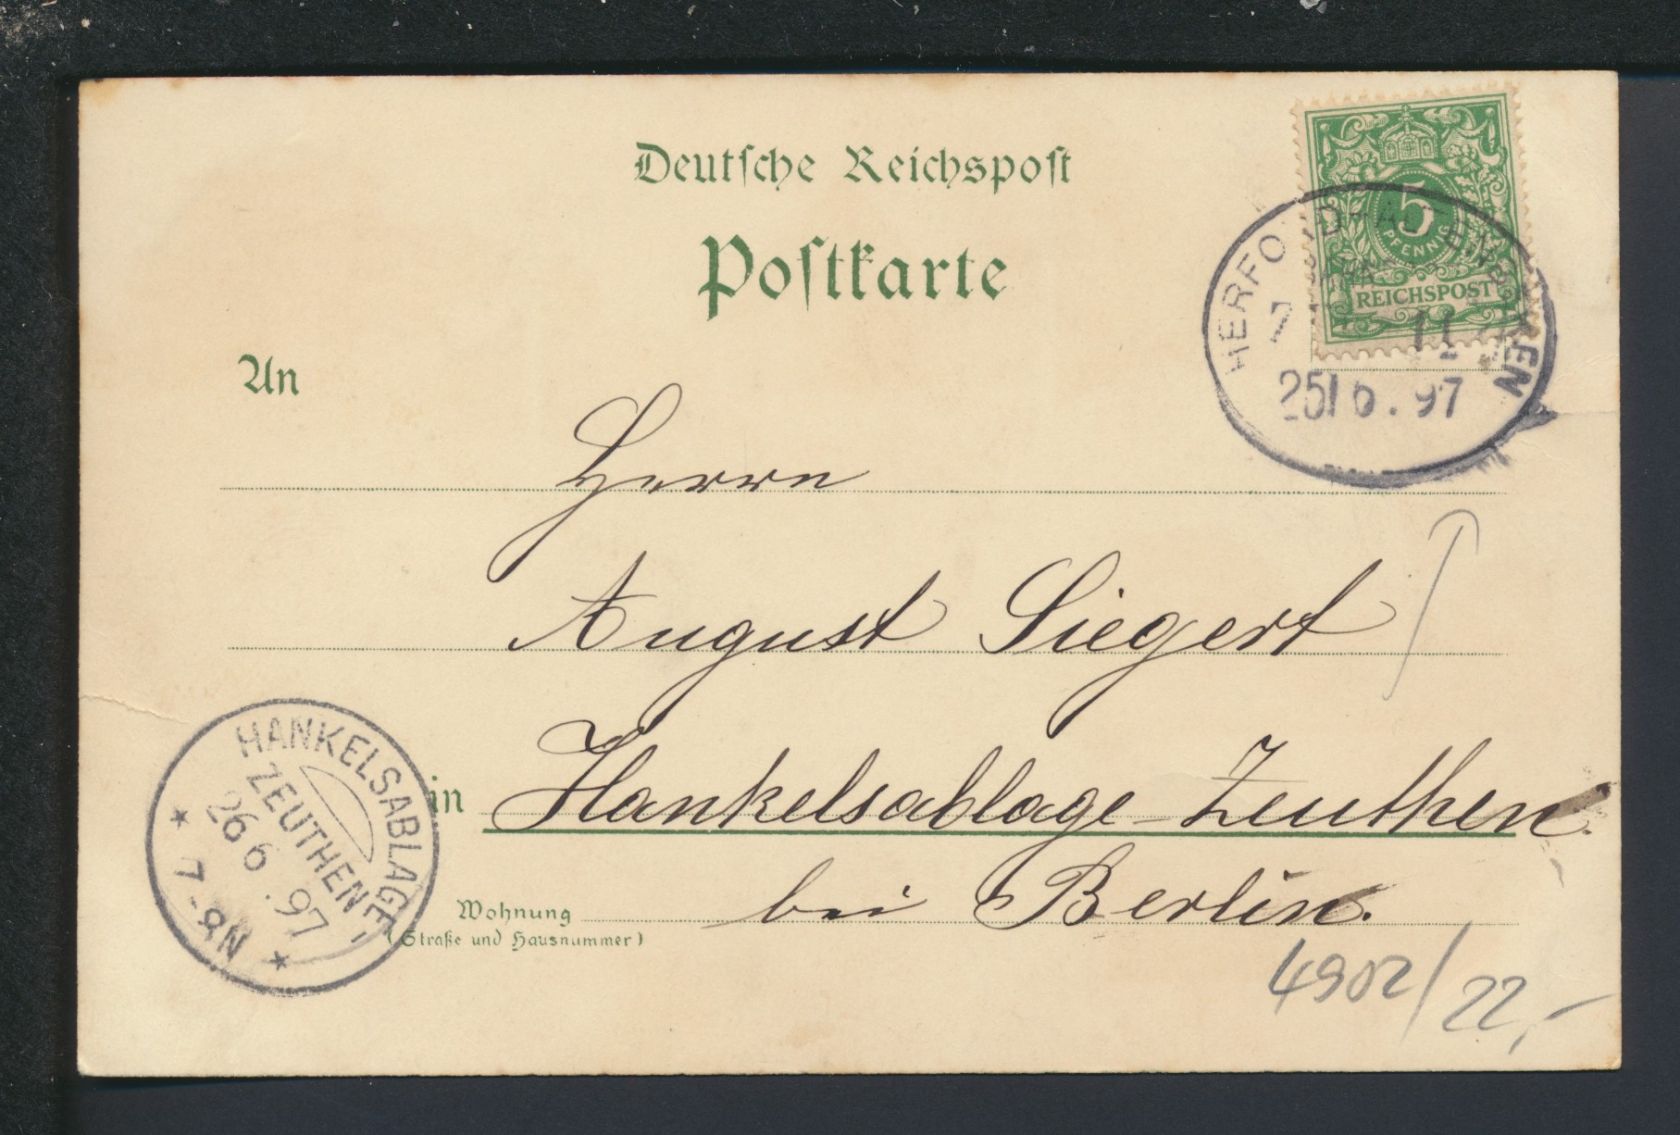 Deutsche Reichspost
Postkarte
5
PFENNIG
REICHSPOST
HERFORD-ALTENBEKEN
BAHNPOST
Z 11
25/6.97
An
Herrn
August Siegert
in Hankelsablage-Zeuthen
bei Berlin.
Wohnung
(Straße und Hausnummer)
HANKELSABLAGE-
ZEUTHEN
26 6.97
7-8N
4902/22,-